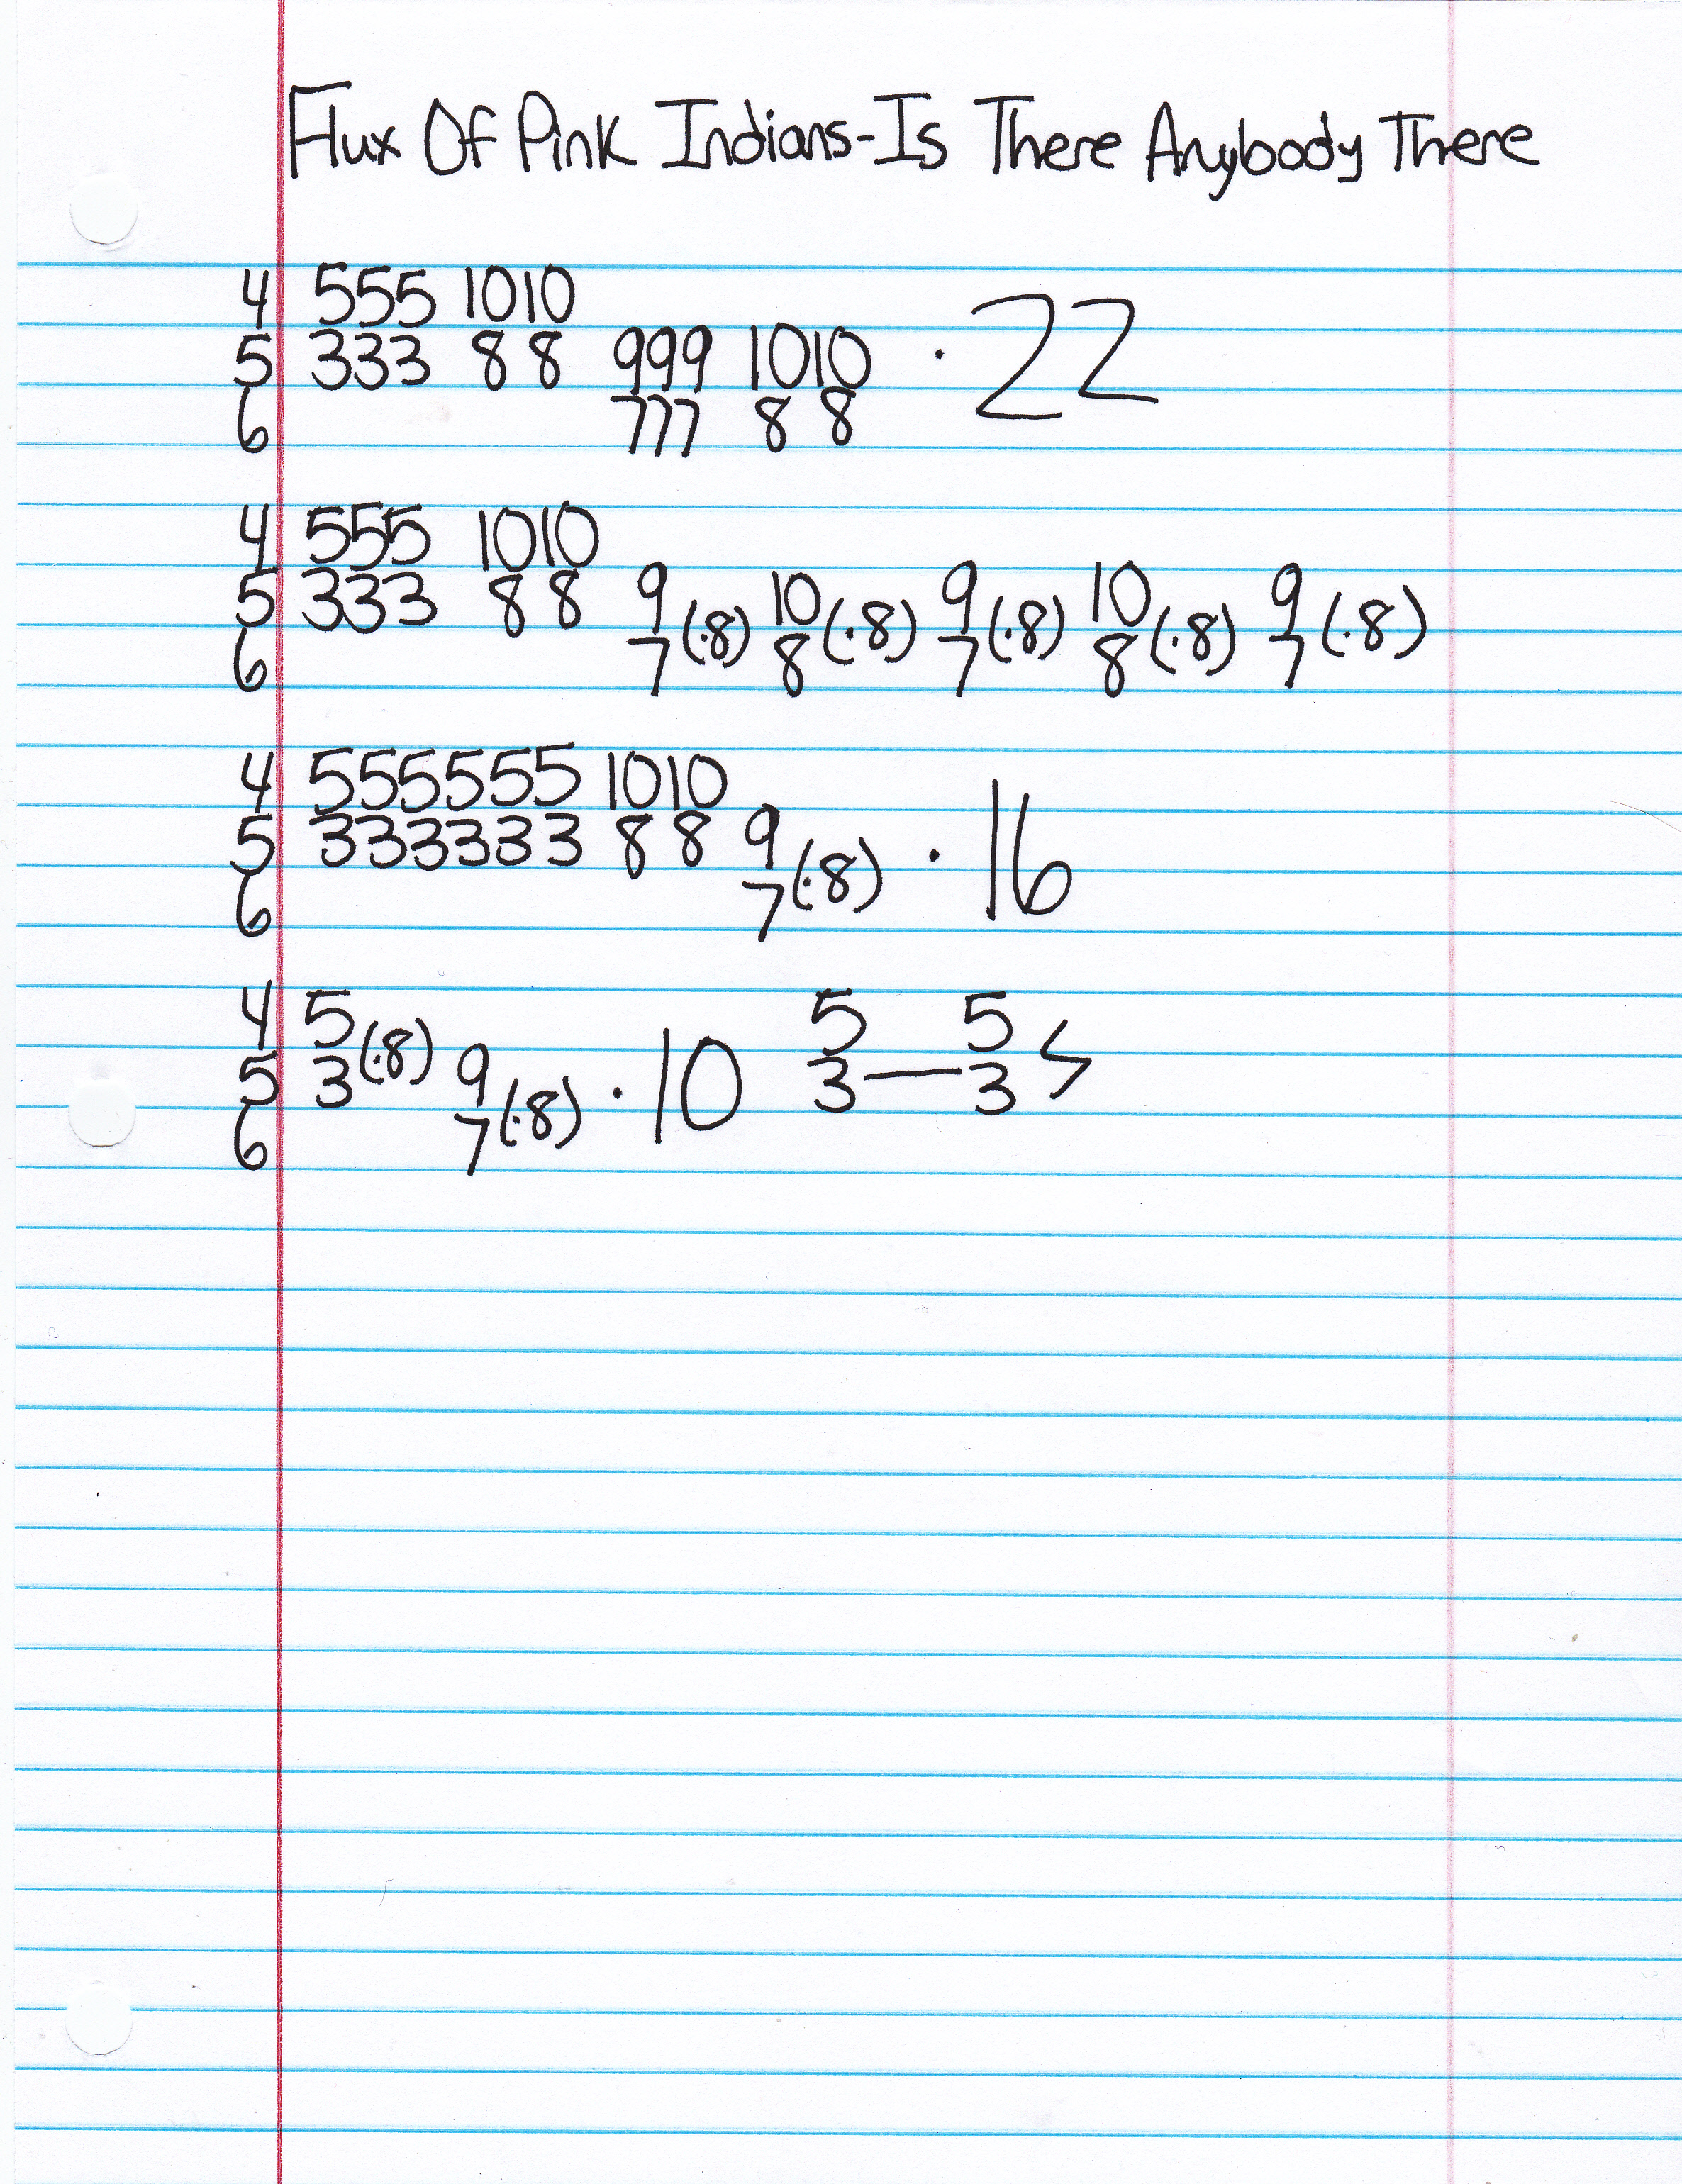 Flux Of Pink Indians-Is There Anybody There
4 555 1010
5 333 8 8 999 1010 · 22
6 777 8 8
4 555 1010
5 333 8 8 9 (·8) 10 (·8) 9 (·8) 10 (·8) 9 (·8)
6 7 8 7 8 7
4 555555 1010
5 333333 8 8 9 (·8) · 16
6 7
4 5 (·8) 5 5
5 3 9 (·8) · 10 3—3
6 7